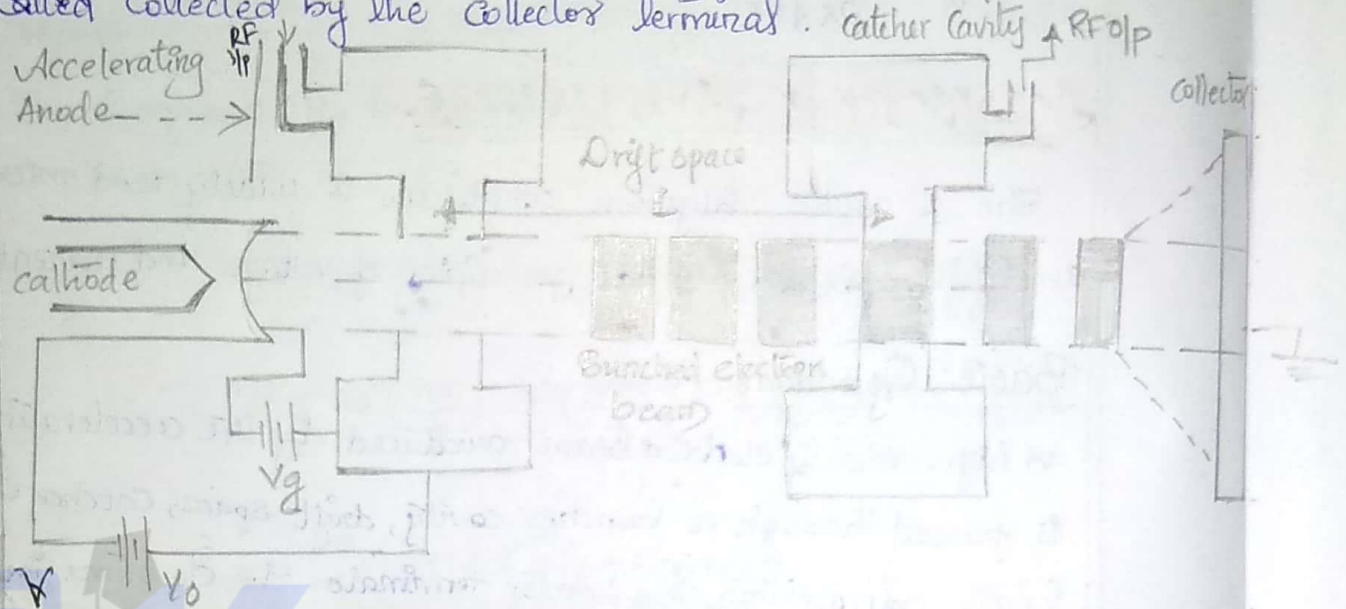 called Collected by the Collector terminal. Catcher Cavity RF o/p
RF
i/p
Accelerating
Anode
Collector
Drift space
L
Cathode
Bunched electron
beam
Vg
V0